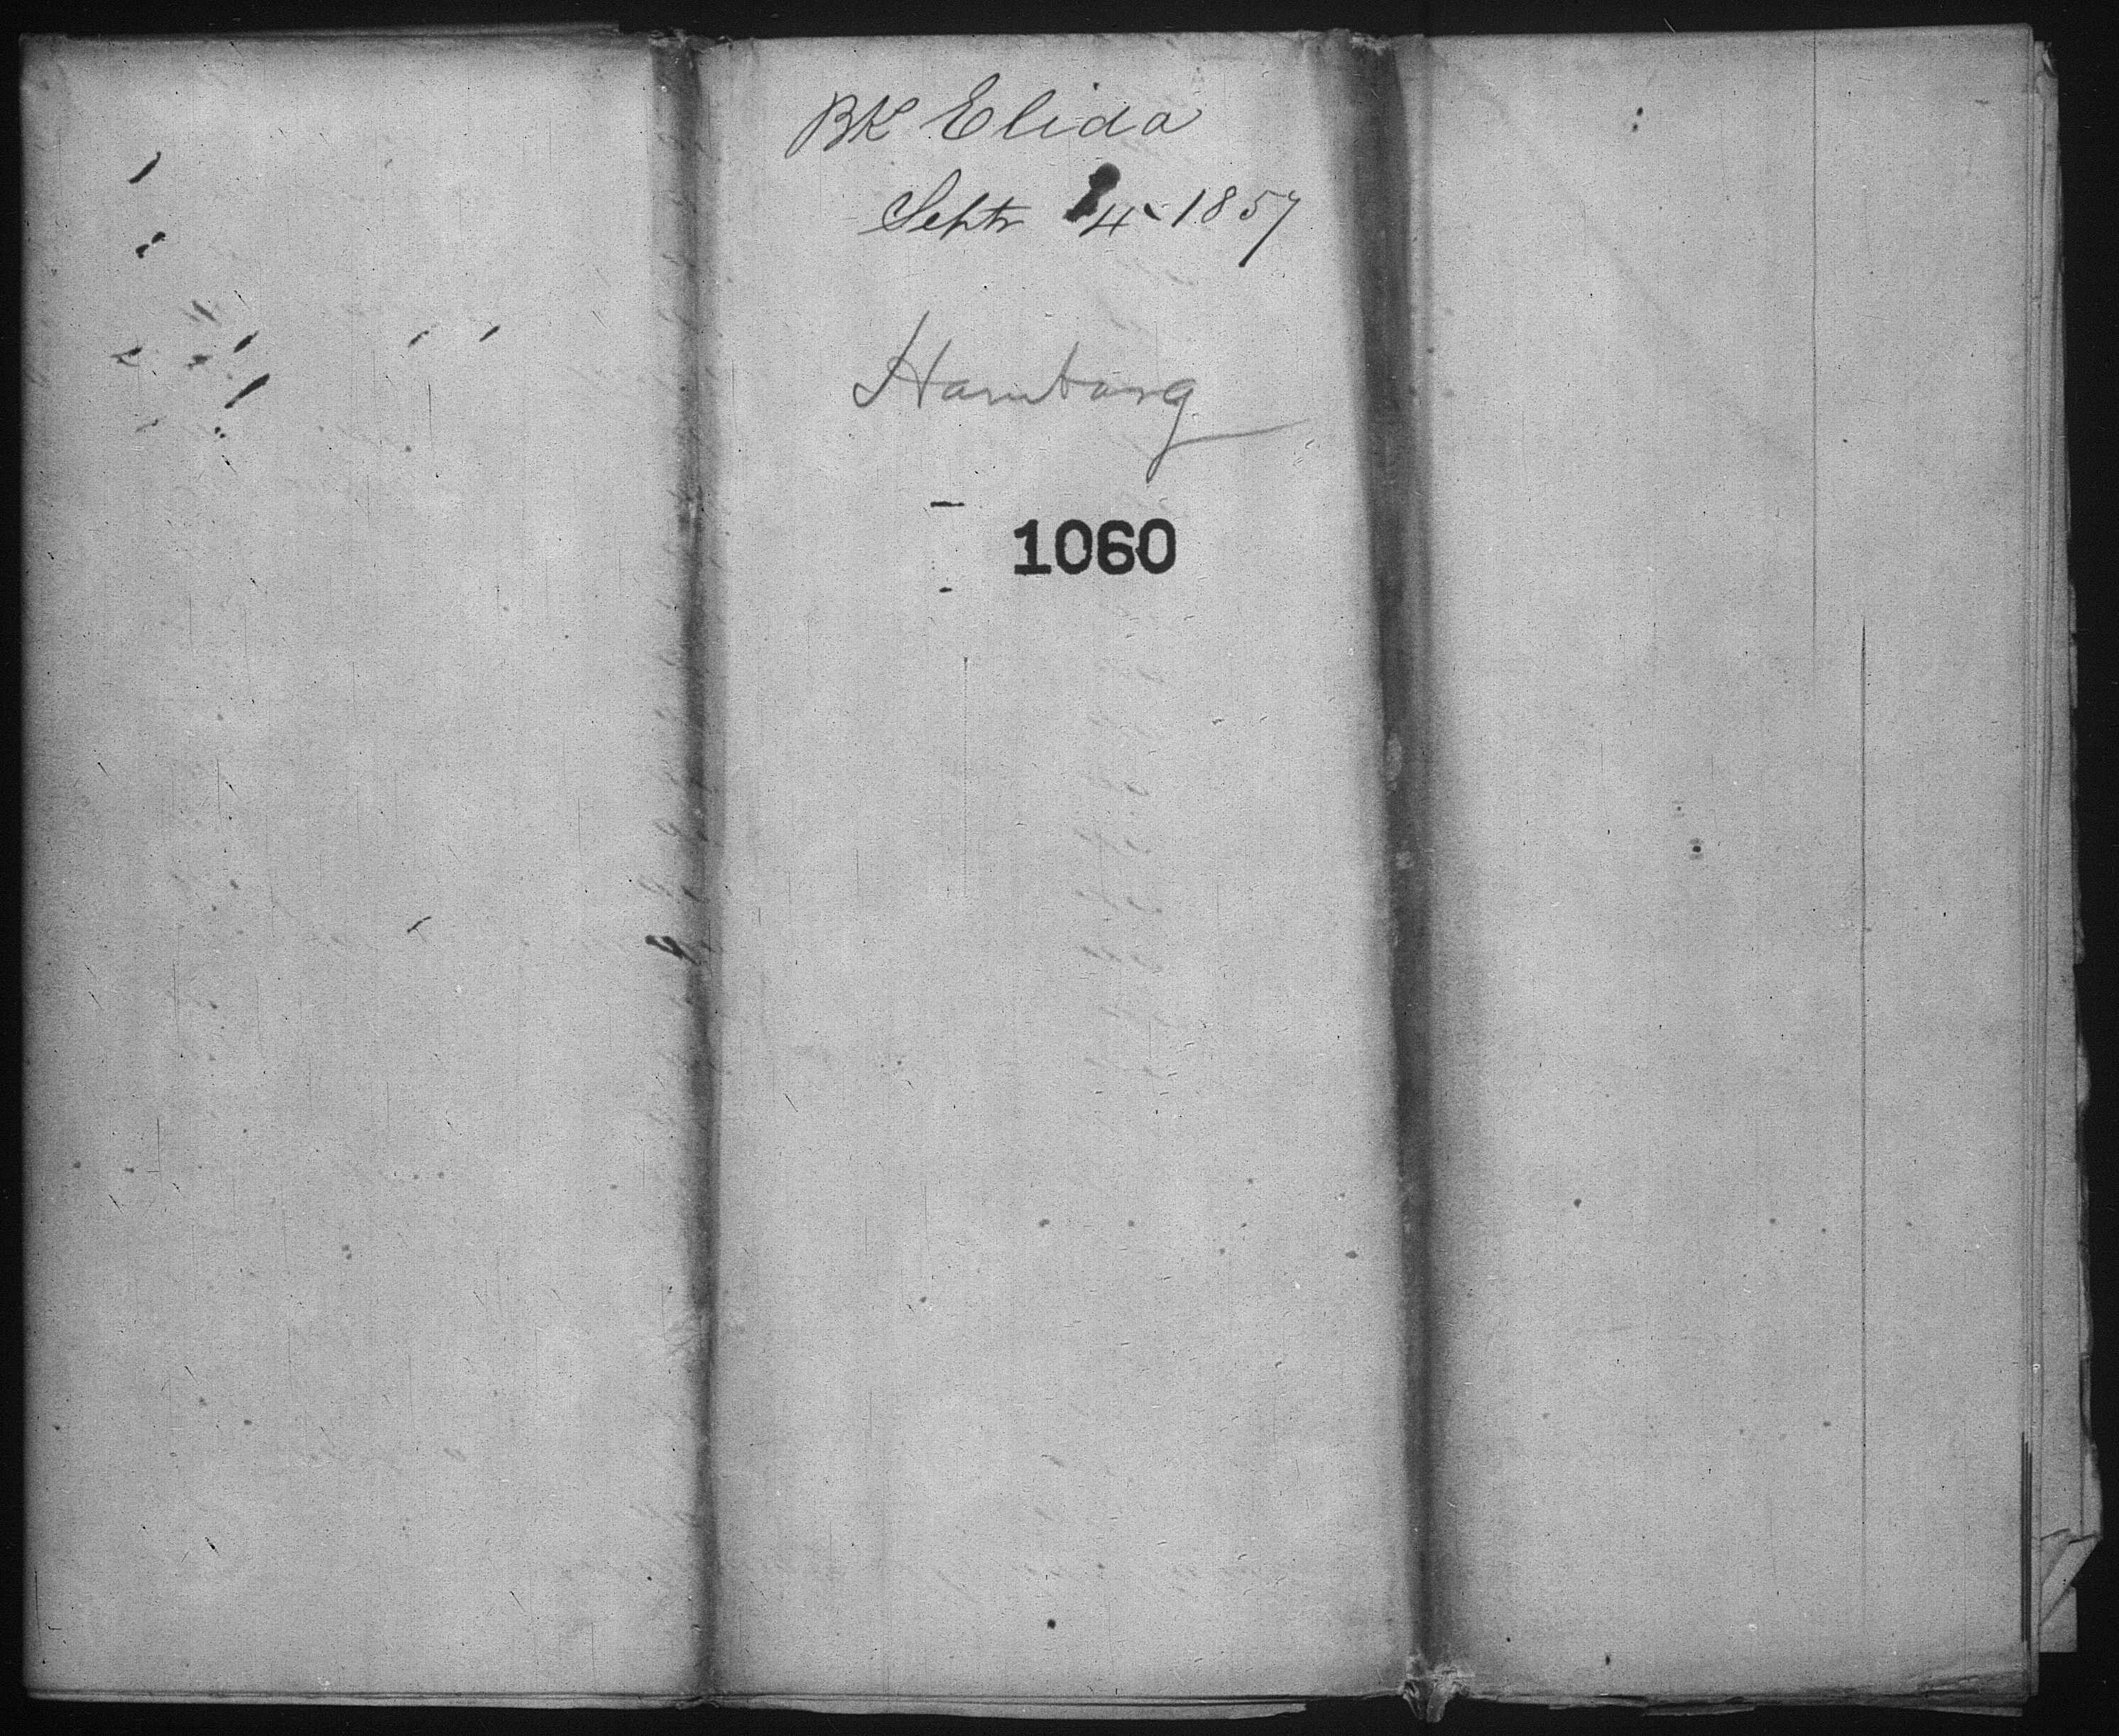 BK Elida
Septr 4 - 1857
Hamburg
1060